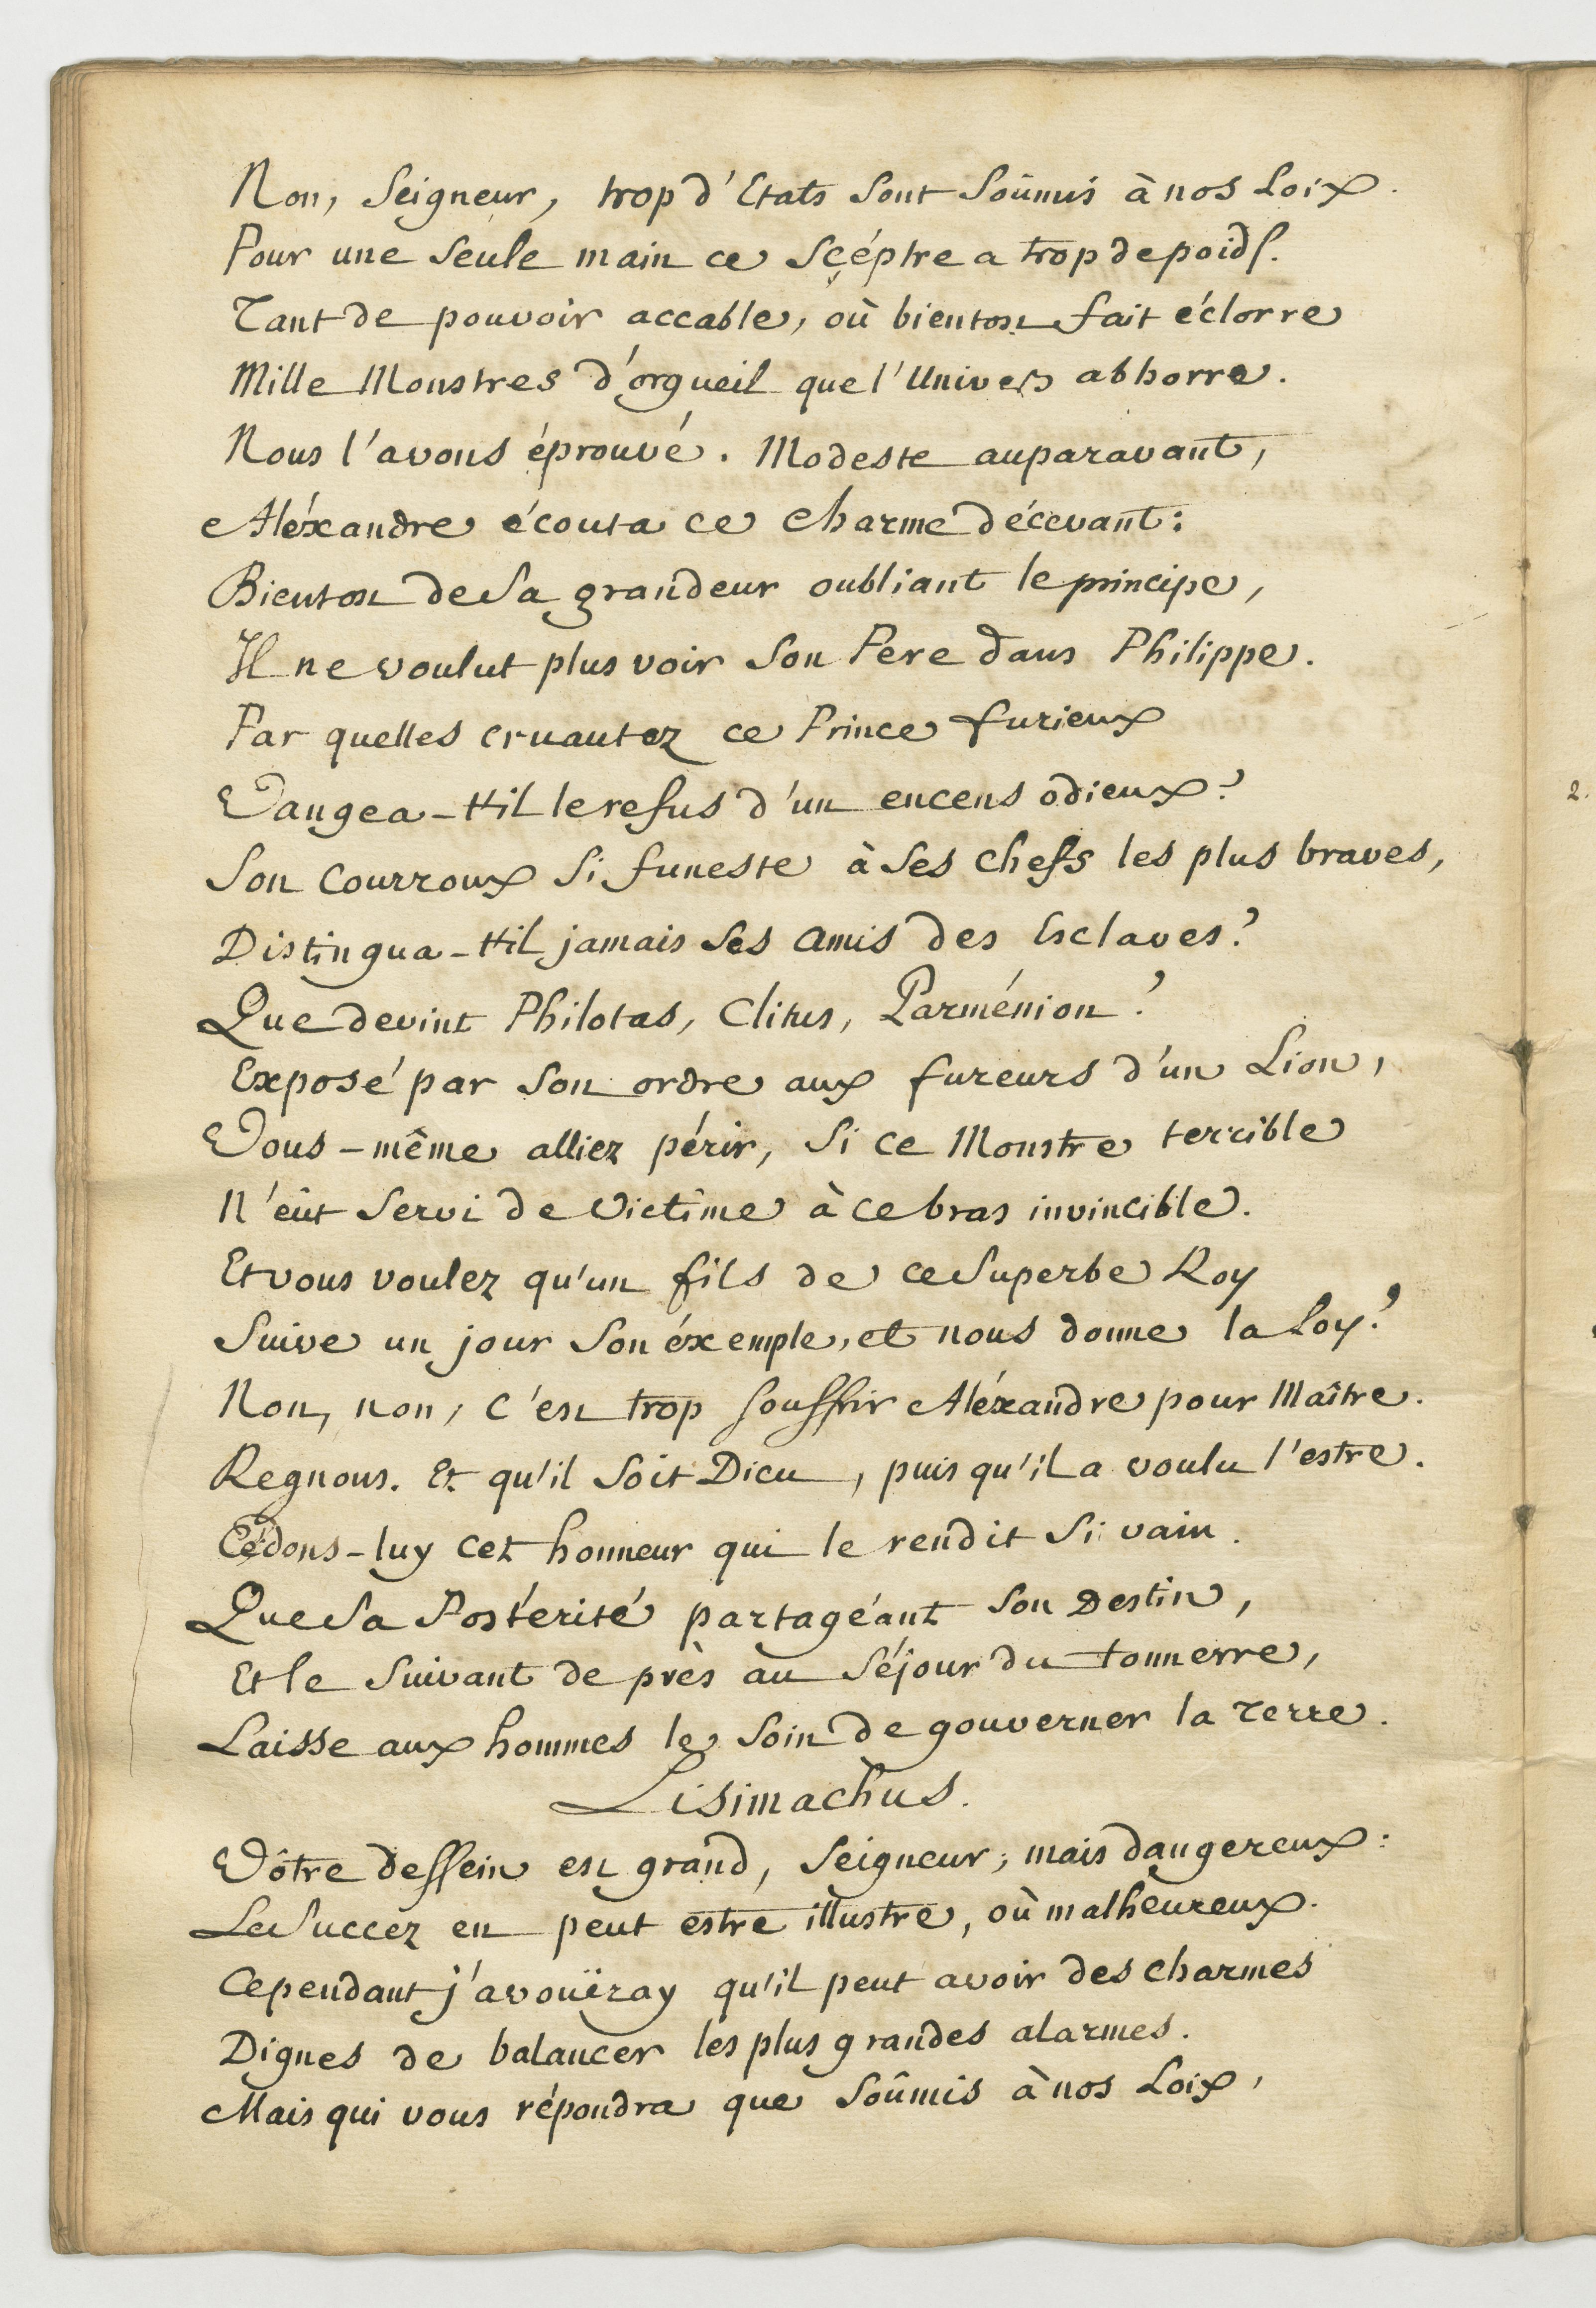 Non, Seigneur, trop d'Etats sont soûmis à nos Loix.
Pour une seule main ce Scéptre a trop de poids.
Tant de pouvoir accable, où bientost fait éclorre
Mille Monstres d'orgueil que l'Univers abhorre.
Nous l'avons éprouvé. Modeste auparavant,
Aléxandre écouta ce charme décevant:
Bientost de sa grandeur oubliant le principe,
Il ne voulut plus voir son Pere dans Philippe.
Par quelles cruautez ce Prince furieux
Vangea-t'il le refus d'un encens odieux?
Son Courroux si funeste à ses chefs les plus braves,
Distingua-t'il jamais ses amis des Esclaves?
Que devint Philotas, Clitus, Parménion?
Exposé par son ordre aux fureurs d'un Lion,
Vous-même alliez périr, si ce Monstre terrible
N'eût servi de victime à ce bras invincible.
Et vous voulez qu'un fils de ce superbe Roy
Suive un jour son éxemple, et nous donne la Loy?
Non, non, c'est trop souffrir Aléxandre pour Maître.
Regnons. Et qu'il soit Dieu, puis qu'il a voulu l'estre.
Cédons-luy cet honneur qui le rendit si vain.
Que sa Postérité partagéant son Destin,
Et le suivant de près au séjour du tonnerre,
Laisse aux hommes le soin de gouverner la Terre.
Lisimachus.
Vôtre dessein est grand, Seigneur, mais dangereux:
Le succez en peut estre illustre, où malheureux.
Cependant j'avoüray qu'il peut avoir des charmes
Dignes de balancer les plus grandes alarmes.
Mais qui vous répondra que soûmis à nos Loix,
2.